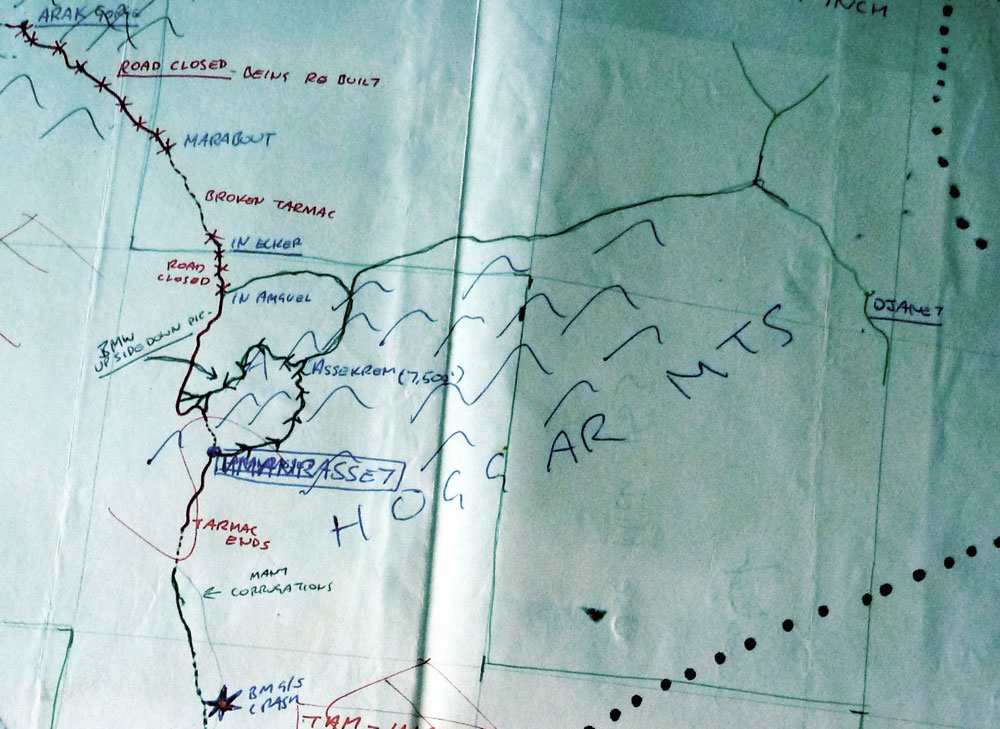 ARAK GORGE
INCH
ROAD CLOSED - BEING RE BUILT
MARABOUT
BROKEN TARMAC
IN ECKER
ROAD
CLOSED
IN AMGUEL
DJANET
BMW
UPSIDE DOWN PIC.
ASSEKREM (7,500')
HOGGAR MTS
TAMANRASSET
TARMAC
ENDS
MANY
CORRUGATIONS
BM G/S
CRASH
TAM -